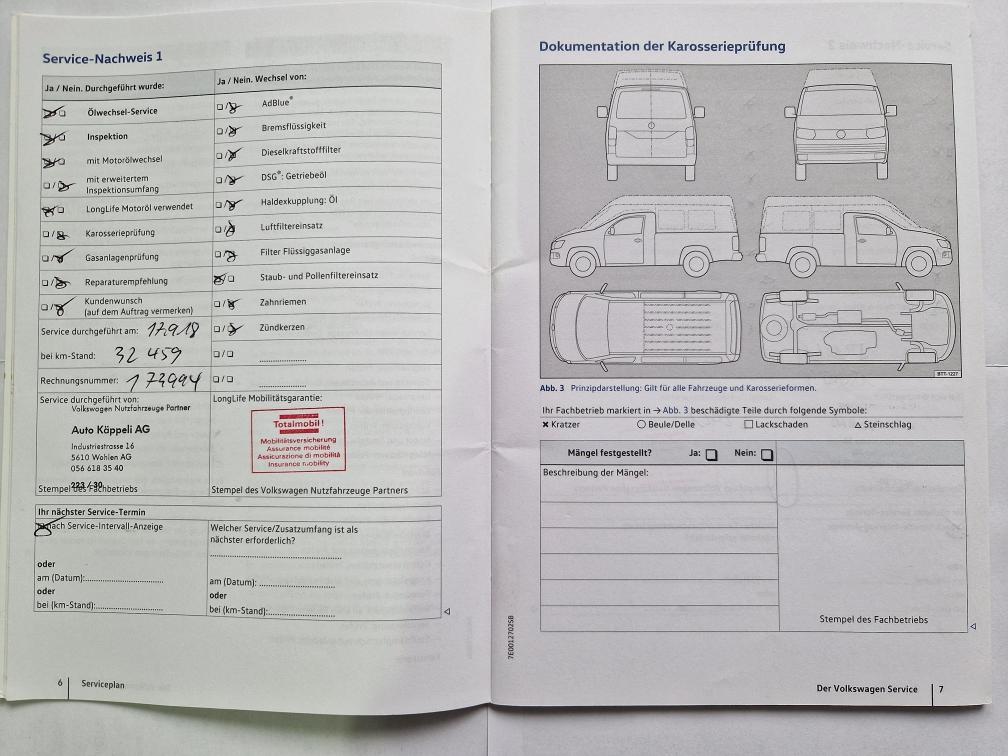 Service-Nachweis 1
Ja / Nein. Durchgeführt wurde:
Ölwechsel-Service
Inspektion
mit Motorölwechsel
mit erweitertem
Inspektionsumfang
LongLife Motoröl verwendet
Karosserieprüfung
Gasanlagenprüfung
Reparaturempfehlung
Kundenwunsch
(auf dem Auftrag vermerken)
Ja / Nein. Wechsel von:
AdBlue®
Bremsflüssigkeit
Dieselkraftstofffilter
DSG®: Getriebeöl
Haldexkupplung: Öl
Luftfiltereinsatz
Filter Flüssiggasanlage
Staub- und Pollenfiltereinsatz
Zahnriemen
Zündkerzen
Service durchgeführt am: 17.9.18
bei km-Stand: 32 459
Rechnungsnummer: 173994
Service durchgeführt von:
Volkswagen Nutzfahrzeuge Partner
Auto Käppeli AG
Industriestrasse 16
5610 Wohlen AG
056 618 35 40
223 / 30
Stempel des Fachbetriebs
LongLife Mobilitätsgarantie:
Totalmobil!
Mobilitätsversicherung
Assurance mobilité
Assicurazione di mobilità
Insurance mobility
Stempel des Volkswagen Nutzfahrzeuge Partners
Ihr nächster Service-Termin
nach Service-Intervall-Anzeige
oder
am (Datum):
oder
bei (km-Stand):
Welcher Service/Zusatzumfang ist als
nächster erforderlich?
am (Datum):
oder
bei (km-Stand):
6 Serviceplan
Dokumentation der Karosserieprüfung
BTT-1227
Abb. 3 Prinzipdarstellung: Gilt für alle Fahrzeuge und Karosserieformen.
Ihr Fachbetrieb markiert in → Abb. 3 beschädigte Teile durch folgende Symbole:
✕ Kratzer ○ Beule/Delle □ Lackschaden △ Steinschlag
Mängel festgestellt? Ja: Nein:
Beschreibung der Mängel:
Stempel des Fachbetriebs
7E0012702SB
Der Volkswagen Service 7